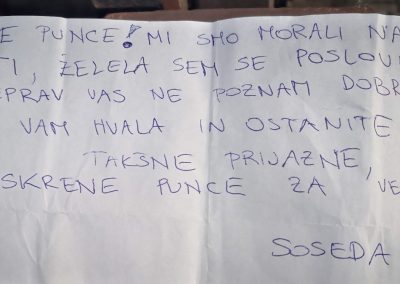 E PUNCE! MI SMO MORALI NA
TI, ŽELELA SEM SE POSLOVI
EPRAV VAS NE POZNAM DOBR
VAM HVALA IN OSTANITE
TAKŠNE PRIJAZNE,
SKRENE PUNCE ZA VE
SOSEDA